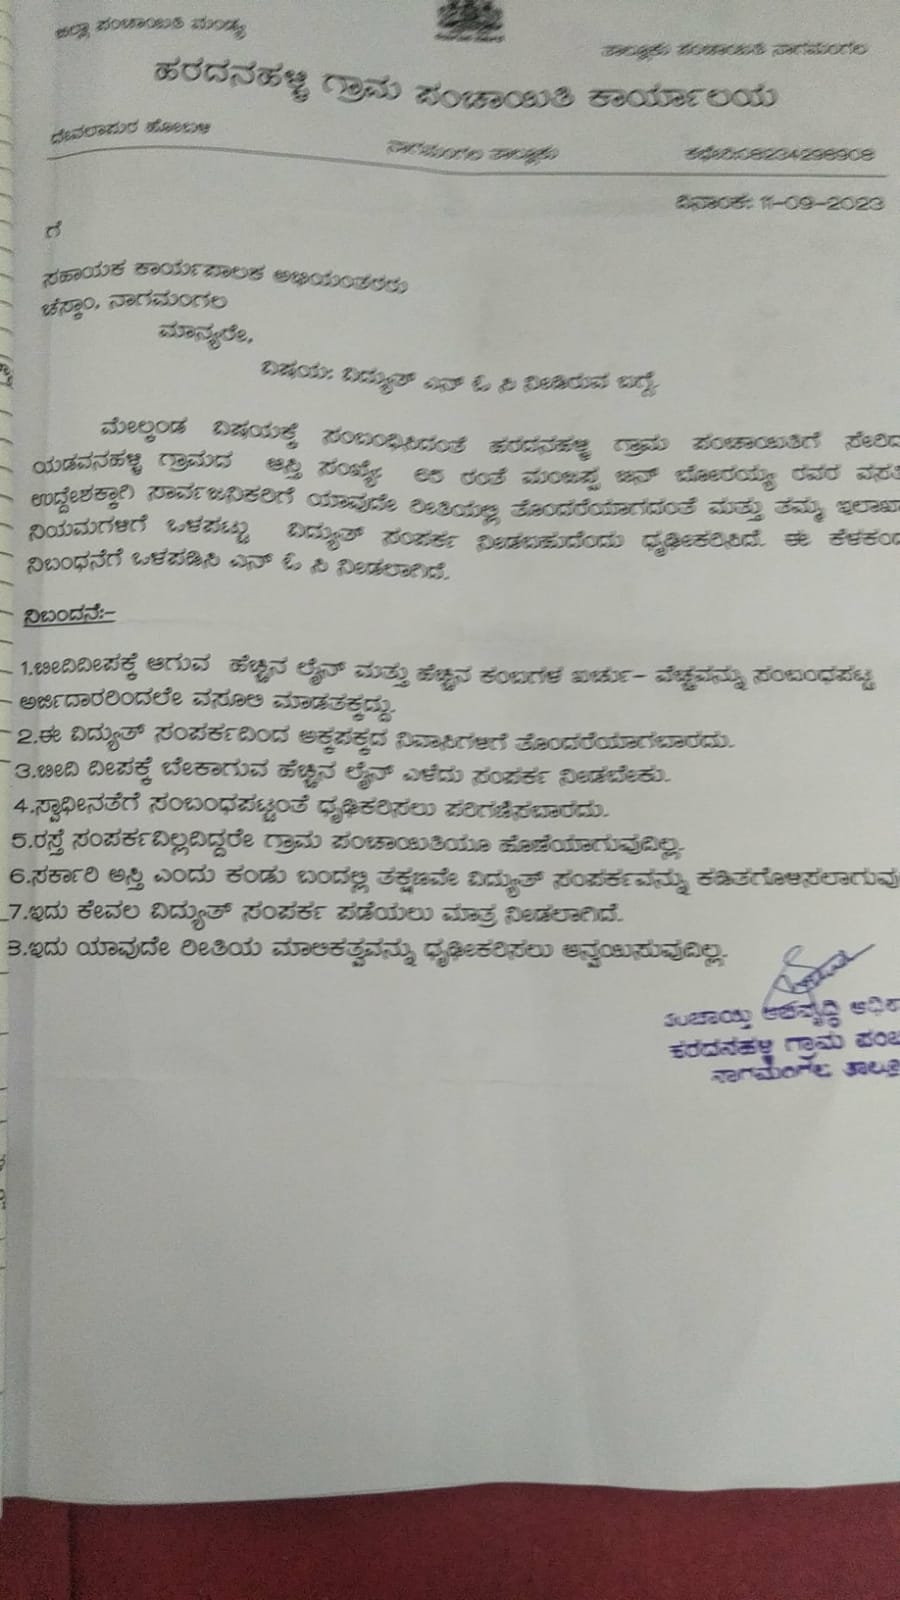 ಜಿಲ್ಲಾ ಪಂಚಾಯಿತಿ ಮಂಡ್ಯ
ತಾಲ್ಲೂಕು ಪಂಚಾಯಿತಿ ನಾಗಮಂಗಲ
ಹರದನಹಳ್ಳಿ ಗ್ರಾಮ ಪಂಚಾಯಿತಿ ಕಾರ್ಯಾಲಯ
ದೇವಲಾಪುರ ಹೋಬಳಿ
ನಾಗಮಂಗಲ ತಾಲ್ಲೂಕು
08234298908
ದಿನಾಂಕ: 11-09-2023
ಗೆ
ಸಹಾಯಕ ಕಾರ್ಯಪಾಲಕ ಅಭಿಯಂತರರು
ಚೆಸ್ಕಾಂ, ನಾಗಮಂಗಲ
ಮಾನ್ಯರೇ,
ವಿಷಯ: ವಿದ್ಯುತ್ ಎನ್ ಓ ಸಿ ನೀಡಿರುವ ಬಗ್ಗೆ.
ಮೇಲ್ಕಂಡ ವಿಷಯಕ್ಕೆ ಸಂಬಂಧಿಸಿದಂತೆ ಹರದನಹಳ್ಳಿ ಗ್ರಾಮ ಪಂಚಾಯಿತಿಗೆ ಸೇರಿದ
ಯಡವನಹಳ್ಳಿ ಗ್ರಾಮದ ಆಸ್ತಿ ಸಂಖ್ಯೆ ರಂತೆ ಮಂಜಪ್ಪ ಬಿನ್ ಬೋರಯ್ಯ ರವರ ವಸತಿ
ಉದ್ದೇಶಕ್ಕಾಗಿ ಸಾರ್ವಜನಿಕರಿಗೆ ಯಾವುದೇ ರೀತಿಯಲ್ಲಿ ತೊಂದರೆಯಾಗದಂತೆ ಮತ್ತು ತಮ್ಮ ಇಲಾಖಾ
ನಿಯಮಗಳಿಗೆ ಒಳಪಟ್ಟು ವಿದ್ಯುತ್ ಸಂಪರ್ಕ ನೀಡಬಹುದೆಂದು ಧೃಢೀಕರಿಸಿದೆ. ಈ ಕೆಳಕಂಡ
ನಿಬಂಧನೆಗೆ ಒಳಪಡಿಸಿ ಎನ್ ಓ ಸಿ ನೀಡಲಾಗಿದೆ.
ನಿಬಂದನೆ:-
1.ಬೀದಿದೀಪಕ್ಕೆ ಆಗುವ ಹೆಚ್ಚಿನ ಲೈನ್ ಮತ್ತು ಹೆಚ್ಚಿನ ಕಂಬಗಳ ಖರ್ಚು- ವೆಚ್ಚವನ್ನು ಸಂಬಂಧಪಟ್ಟ
ಅರ್ಜಿದಾರರಿಂದಲೇ ವಸೂಲಿ ಮಾಡತಕ್ಕದ್ದು.
2.ಈ ವಿದ್ಯುತ್ ಸಂಪರ್ಕದಿಂದ ಅಕ್ಕಪಕ್ಕದ ನಿವಾಸಿಗಳಿಗೆ ತೊಂದರೆಯಾಗಬಾರದು.
3.ಬೀದಿ ದೀಪಕ್ಕೆ ಬೇಕಾಗುವ ಹೆಚ್ಚಿನ ಲೈನ್ ಎಳೆದು ಸಂಪರ್ಕ ನೀಡಬೇಕು.
4.ಸ್ವಾಧೀನತೆಗೆ ಸಂಬಂಧಪಟ್ಟಂತೆ ಧೃಢಿಕರಿಸಲು ಪರಿಗಣಿಸಬಾರದು.
5.ರಸ್ತೆ ಸಂಪರ್ಕವಿಲ್ಲದಿದ್ದರೇ ಗ್ರಾಮ ಪಂಚಾಯಿತಿಯೂ ಹೊಣೆಯಾಗುವುದಿಲ್ಲ.
6.ಸರ್ಕಾರಿ ಅಸ್ತಿ ಎಂದು ಕಂಡು ಬಂದಲ್ಲಿ ತಕ್ಷಣವೇ ವಿದ್ಯುತ್ ಸಂಪರ್ಕವನ್ನು ಕಡಿತಗೊಳಿಸಲಾಗುವು
7.ಇದು ಕೇವಲ ವಿದ್ಯುತ್ ಸಂಪರ್ಕ ಪಡೆಯಲು ಮಾತ್ರ ನೀಡಲಾಗಿದೆ.
8.ಇದು ಯಾವುದೇ ರೀತಿಯ ಮಾಲಿಕತ್ವವನ್ನು ಧೃಢೀಕರಿಸಲು ಅನ್ವಯಿಸುವುದಿಲ್ಲ.
ಪಂಚಾಯ್ತಿ ಅಭಿವೃದ್ಧಿ ಅಧಿಕಾ
ಹರದನಹಳ್ಳಿ ಗ್ರಾಮ ಪಂಚ
ನಾಗಮಂಗಲ ತಾಲ್ಲೂ